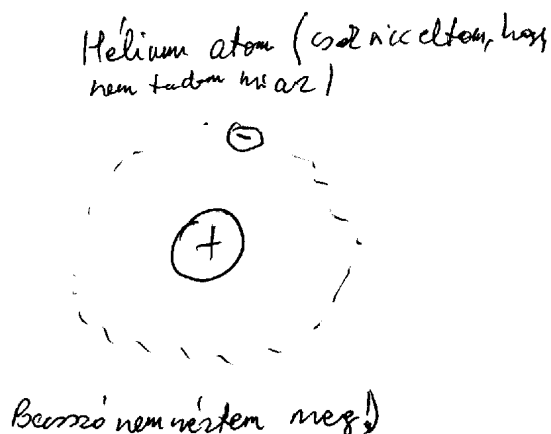 Hélium atom (csak vicceltem, hogy
nem tudom mi az)
-
+
Becsszó nem néztem meg!)